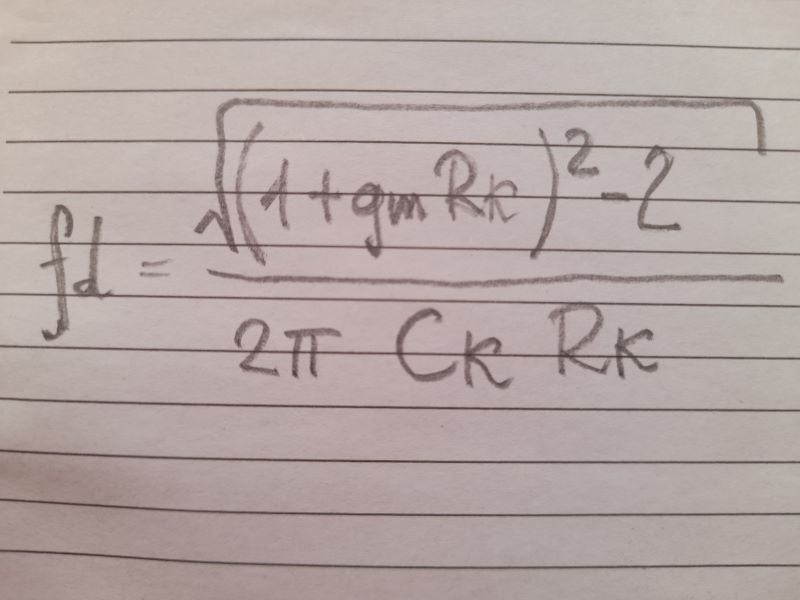 fd = √((1 + gm Rk)² - 2)
2π Ck Rk